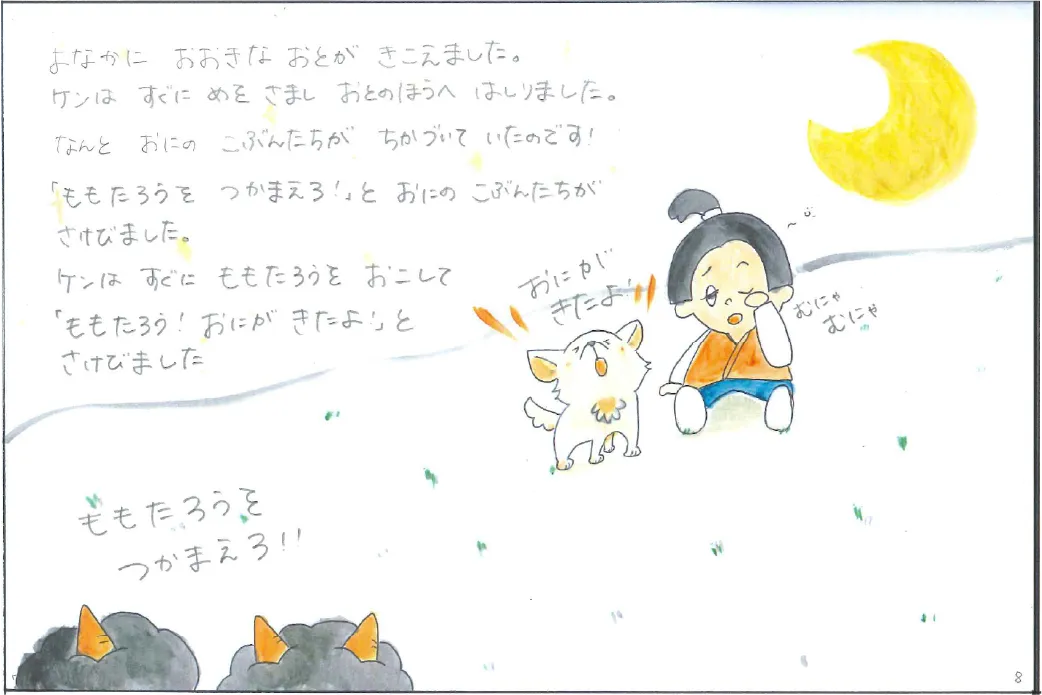 よなかに おおきな おとが きこえました。
ケンは すぐに めを さまし おとのほうへ はしりました。
なんと おにの こぶんたちが ちかづいて いたのです!
「ももたろうを つかまえろ!」と おにの こぶんたちが
さけびました。
ケンは すぐに ももたろうを おこして
「ももたろう! おにが きたよ!」と
さけびました
おにが
きたよ!
むにゃ
むにゃ
ももたろうを
つかまえろ!!
8